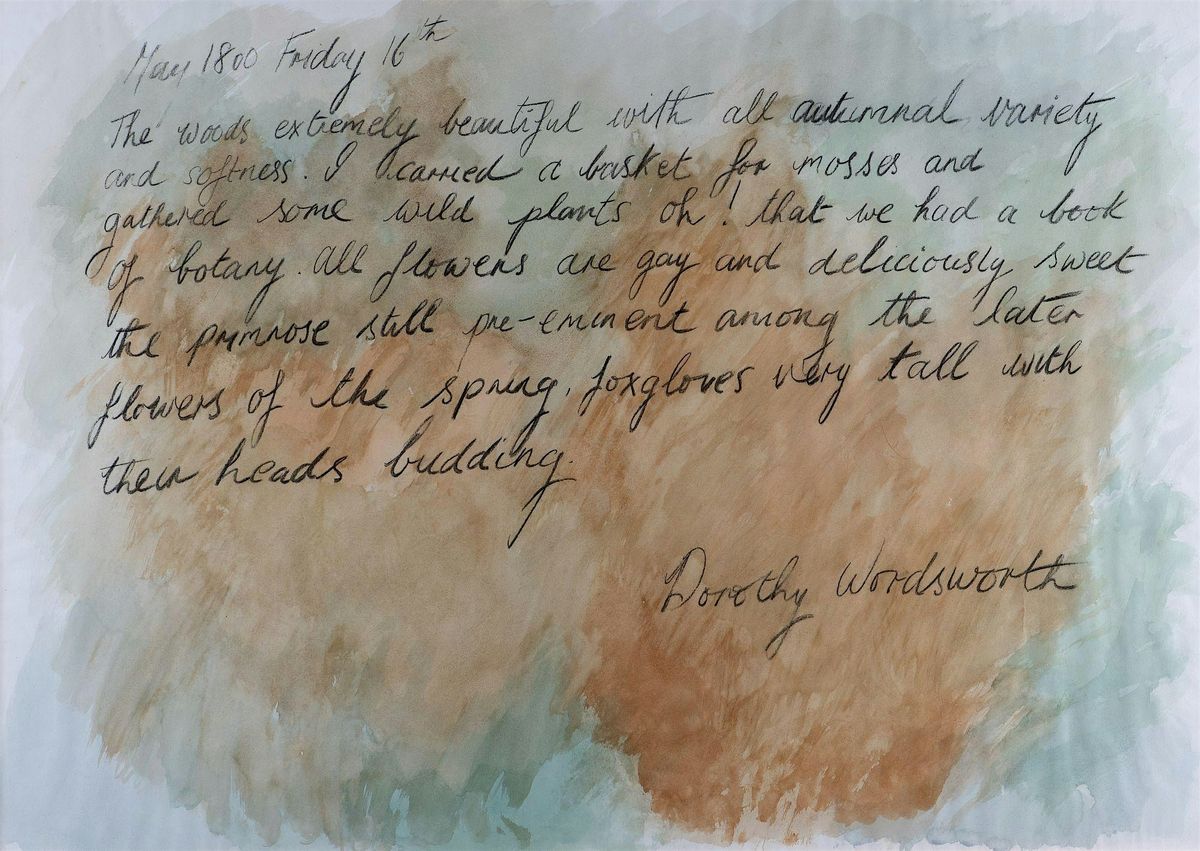 May 1800 Friday 16th
The woods extremely beautiful with all autumnal variety
and softness. I carried a basket for mosses and
gathered some wild plants oh! that we had a book
of botany. All flowers are gay and deliciously sweet
the primrose still pre-eminent among the later
flowers of the spring. foxgloves very tall with
their heads budding.
Dorothy Wordsworth